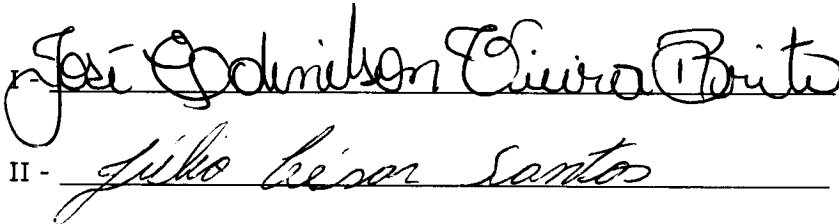 I - José Odenilson Vieira Brito
II - Júlio César Santos